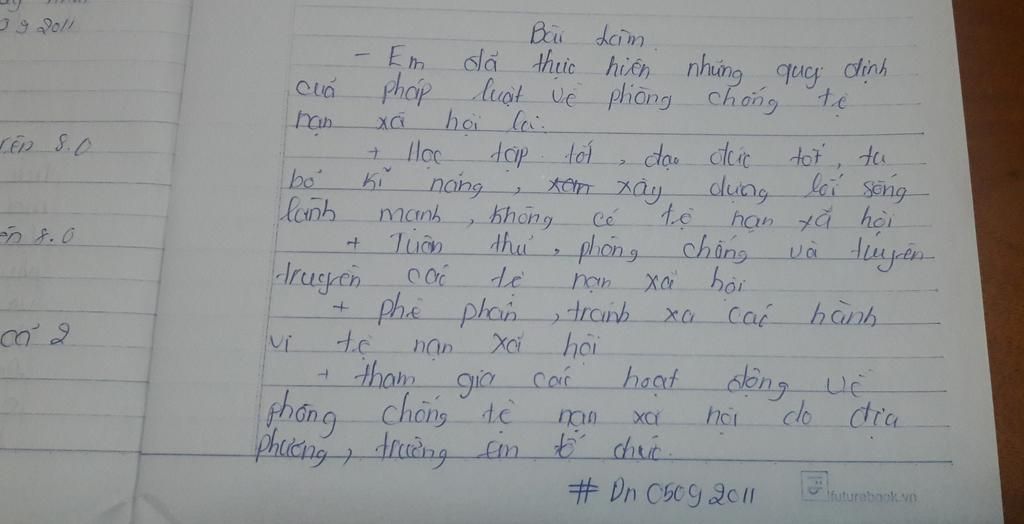 9 2011
Bài làm.
- Em đã thực hiện những quy định
của pháp luật về phòng chống tệ
nạn xã hội là:
+ Học tập tốt, đạo đức tốt, tu
bổ kĩ năng, xây dựng lối sống
lành mạnh, không có tệ nạn xã hội
+ Tuân thủ, phòng chống và tuyên
truyền các tệ nạn xã hội
+ phê phán, tránh xa các hành
vi tệ nạn xã hội
+ tham gia các hoạt động về
phòng chống tệ nạn xã hội do địa
phương, trường em tổ chức.
# Dn 05092011
futurebook.vn
8.0
8.0
2